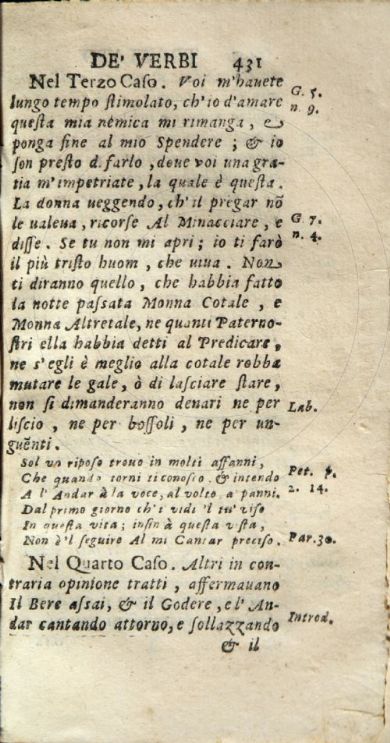 DE' VERBI 431
Nel Terzo Caso. Voi m'hauete
G. 5.
lungo tempo ſtimolato, ch'io d'amare
n. 9.
queſta mia nemica mi rimanga, e
ponga fine al mio Spendere; & io
ſon preſto di farlo, doue voi una gra-
tia m'impetriate, la quale è queſta.
La donna ueggendo, ch'il pregar nõ
le ualeua, ricorſe Al Minacciare, e
G. 7.
diſſe. Se tu non mi apri; io ti farò
n. 4.
il più triſto huom, che uiua. Non
ti diranno quello, che habbia fatto
la notte paſſata Monna Cotale, e
Monna Altretale, ne quanti Paterno-
ſtri ella habbia detti al Predicare,
ne s'egli è meglio alla cotale robba
mutare le gale, ò di laſciare ſtare,
non ſi dimanderanno denari ne per
Lab.
liſcio, ne per boſſoli, ne per un-
guẽnti.
Sol un ripoſo trouo in molti affanni,
Pet. p.
Che quando torni ti conoſco & intendo
2. 14.
A l'Andar à la voce, al volto, a panni.
Dal primo giorno ch'i vidi 'l ſu' viſo
In queſta vita; inſin à queſta viſta,
Non è'l ſeguire Al mi Cantar preciſo.
Par. 30.
Nel Quarto Caſo. Altri in con-
traria opinione tratti, affermauano
Il Bere aſſai, & il Godere, e l'An-
Introd.
dar cantando attorno, e ſollazzando
& il